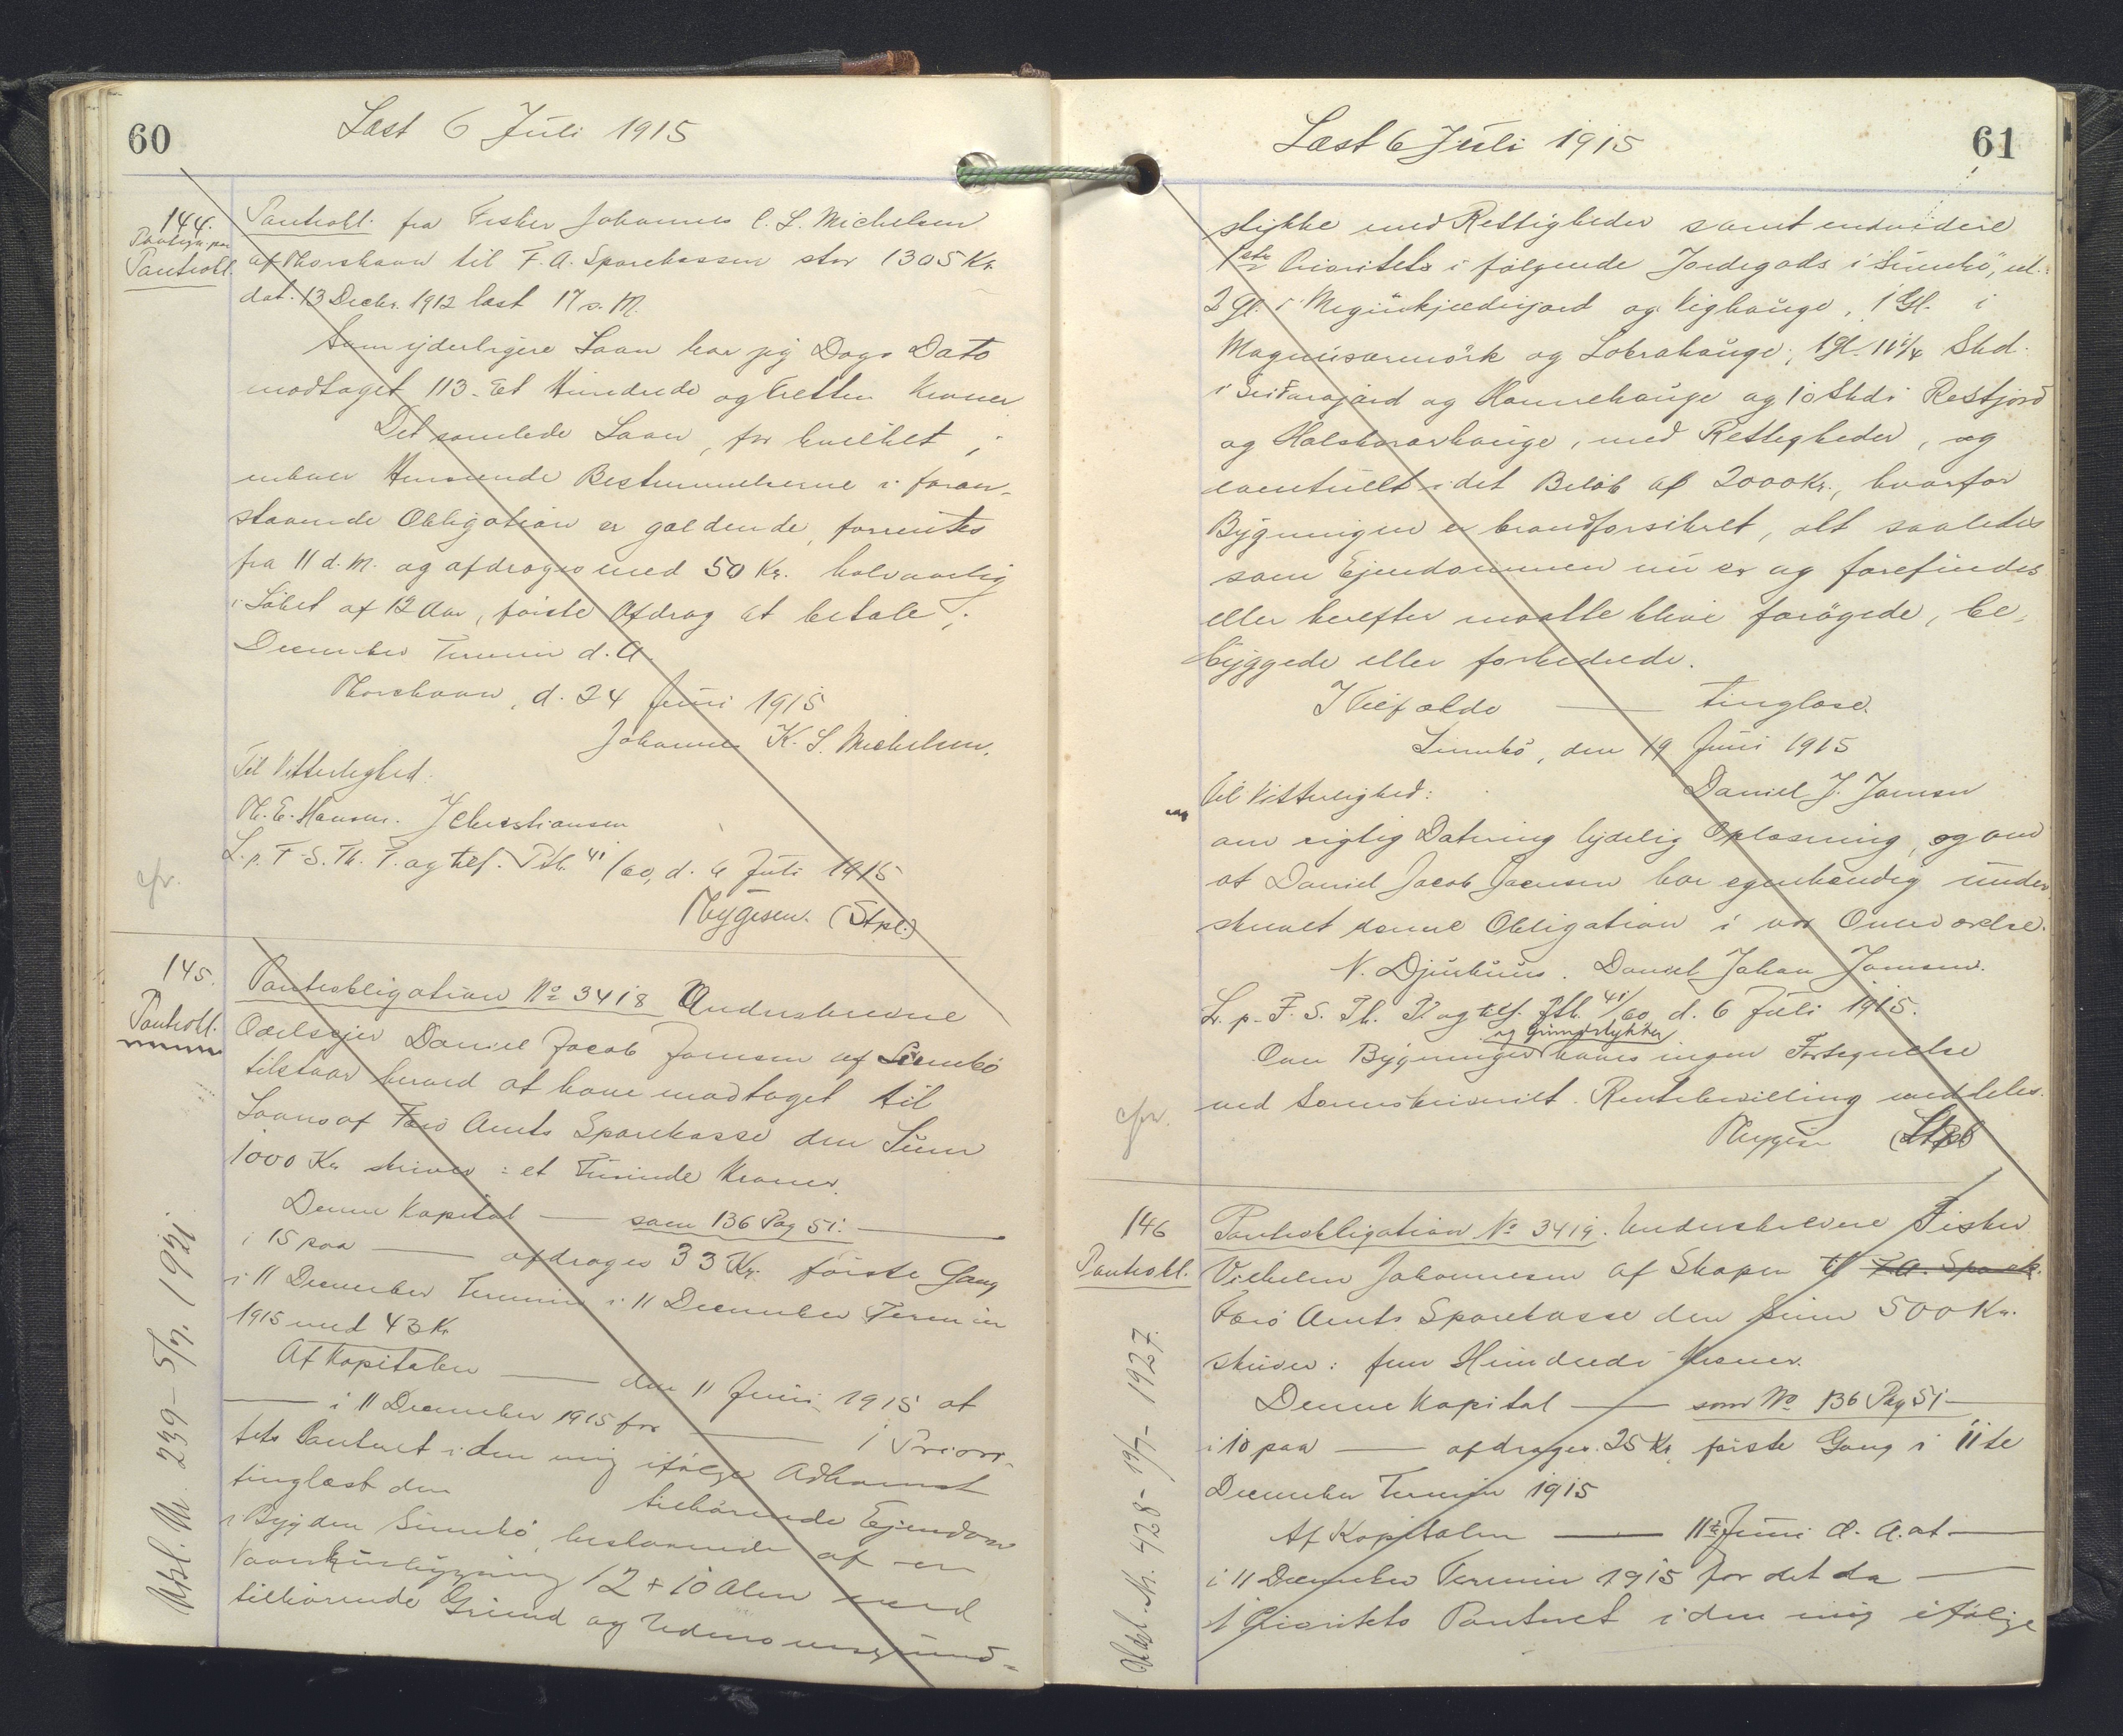 60
Læst 6 Juli 1915
144.
Pantegn. paa
Pantobl.
Pantobl. fra Fisker Johannes C. L. Michelsen
af Thorshavn til F. A. Sparekassen stor 1305 Kr.
dat. 13 Decbr. 1912 læst 17 s. M.
Som yderligere Laan har jeg Dags Dato
modtaget 113 - Et Hundrede og tretten Kroner
Det samlede Laan, for hvilket i
enhver Henseende Bestemmelserne i foran-
staaende Obligation er gældende, forrentes
fra 11 d. M. og afdrages med 50 Kr. halvaarlig
i Löbet af 12 Aar, förste Afdrag at betale i
December Termin d. A.
Thorshavn, d. 24 Juni 1915
Johannes K. S. Michelsen.
Til Vitterlighed:
M. E. Hansen. J Christiansen
L. p. F. S. Th. P. og tilf. Ptb. 41/60, d. 6 Juli 1915
Thygesen. (Stpl.)
cfr.
145.
Pantobl.
Pantobligation No 3418 Underskrevne
Odelsejer Daniel Jacob Joensen af Sumbö
tilstaar herved at have modtaget til
Laans af Færö Amts Sparekasse den Sum
1000 Kr. skriver: et Tusinde Kroner.
Denne Kapital — som 136 Pag 51. —
i 15 paa — afdrages 33 Kr. förste Gang
i 11 December Termin i 11 December Termin
1915 med 43 Kr
Af Kapitalen — den 11 Juni 1915 at
— i 11 December 1915 for — 1 Priori-
tets Panteret i den mig ifølge Adkomst
tinglæst den tilhörende Ejendom
i Bygden Sumbö, bestaaende af en
Vaaningsbygning 12 + 10 Alen med
tilhörende Grund og Udenomsgrund-
Afl. Nr. 239 - 5/7. 1921
61
Læst 6 Juli 1915
stykke med Rettigheder samt endvidere
1ste Prioritets i følgende Jordegods i Sumbö, nl.:
2 Gl. i Meginkjedisjord og Vighauge, 1 Gl. i
Magnusarmörk og Lobrahauge, 1 Gl. 11 1/4 Skd.
i Seidaragjard og Hannehauge og 10 Skd i Restjord
og Halsbararhauge, med Rettigheder, og
eventuelt i det Belöb af 2000 Kr., hvorfor
Bygningen er brandforsikret, alt saaledes
som Ejendommen nu er og forefindes
eller herefter maatte blive forögede, be-
byggede eller forbedrede.
I Tilfælde — tinglæse.
Sumbö, den 19 Juni 1915
Daniel J. Joensen
Til Vitterlighed:
om rigtig Datering tydelig Oplæsning, og om
at Daniel Jacob Joensen har egenhændig under
skrevet denne Obligation i vor Overværelse.
N. Djurhuus. Daniel Johan Joensen.
L. p. F. S. Th. P. og tilf. Ptb. 41/60 d. 6 Juli 1915.
Om Bygninger og Grundstykker haves ingen Fortegnelse
ved Sorenskriveriet. Rentebevilling meddeles.
Thygesen (Stpl)
cfr.
146
Pantobl.
Pantobligation No 3419. Underskrevne Fisker
Vilhelm Johannesen af Skopen til F.A. Spark.
Færö Amts Sparekasse den Sum 500 Kr.
skriver: fem Hundrede Kroner.
Denne Kapital — som No 136 Pag 51 —
i 10 paa — afdrages 25 Kr. förste Gang i 11te
December Termin 1915
Af Kapitalen — 11te Juni d. A. at —
i 11 December Termin 1915 for det da —
1 Prioritets Panteret i den mig ifølge
Udsl. Nr. 428 - 19/7 - 1927.